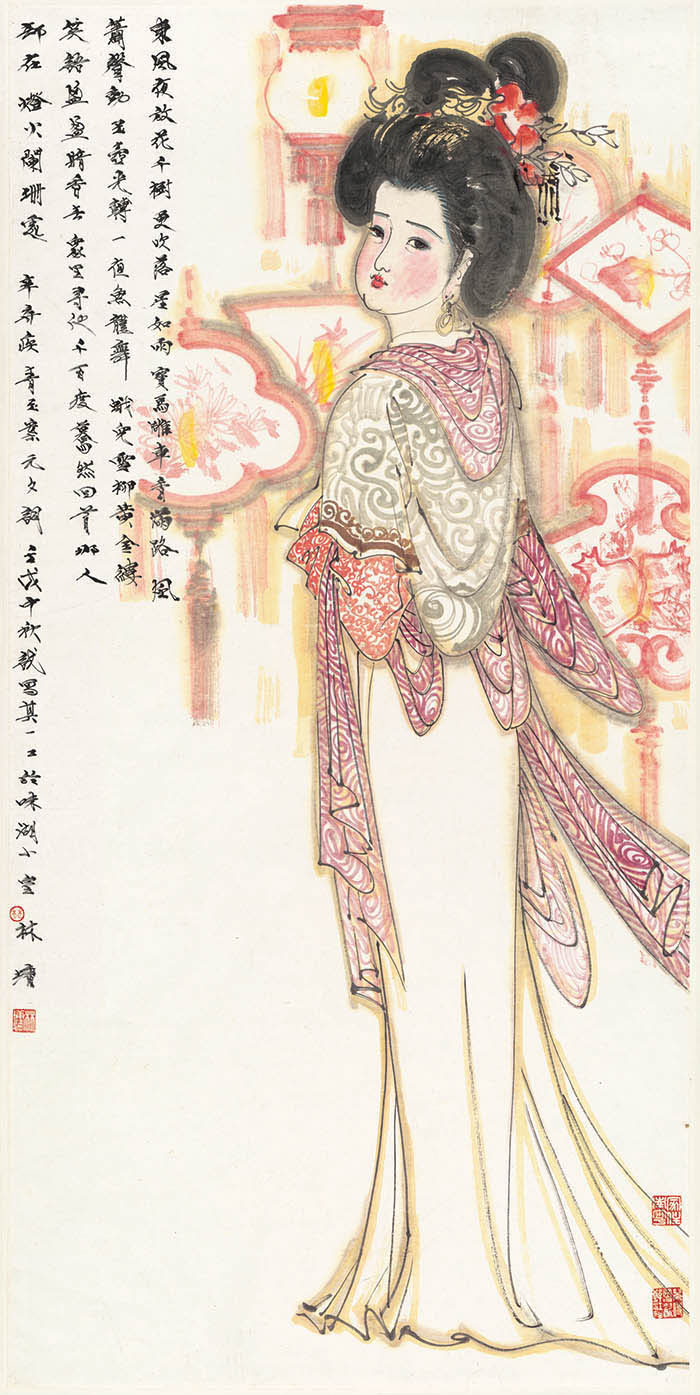 東風夜放花千樹更吹落星如雨寶馬雕車香滿路風
蕭聲動玉壺光轉一夜魚龍舞 蛾兒雪柳黃金縷
笑語盈盈暗香去衆里尋他千百度驀然回首那人
却在燈火闌珊處 辛弃疾青玉案元夕詞 壬戌中秋戲寫其一於味湖小室 林墉